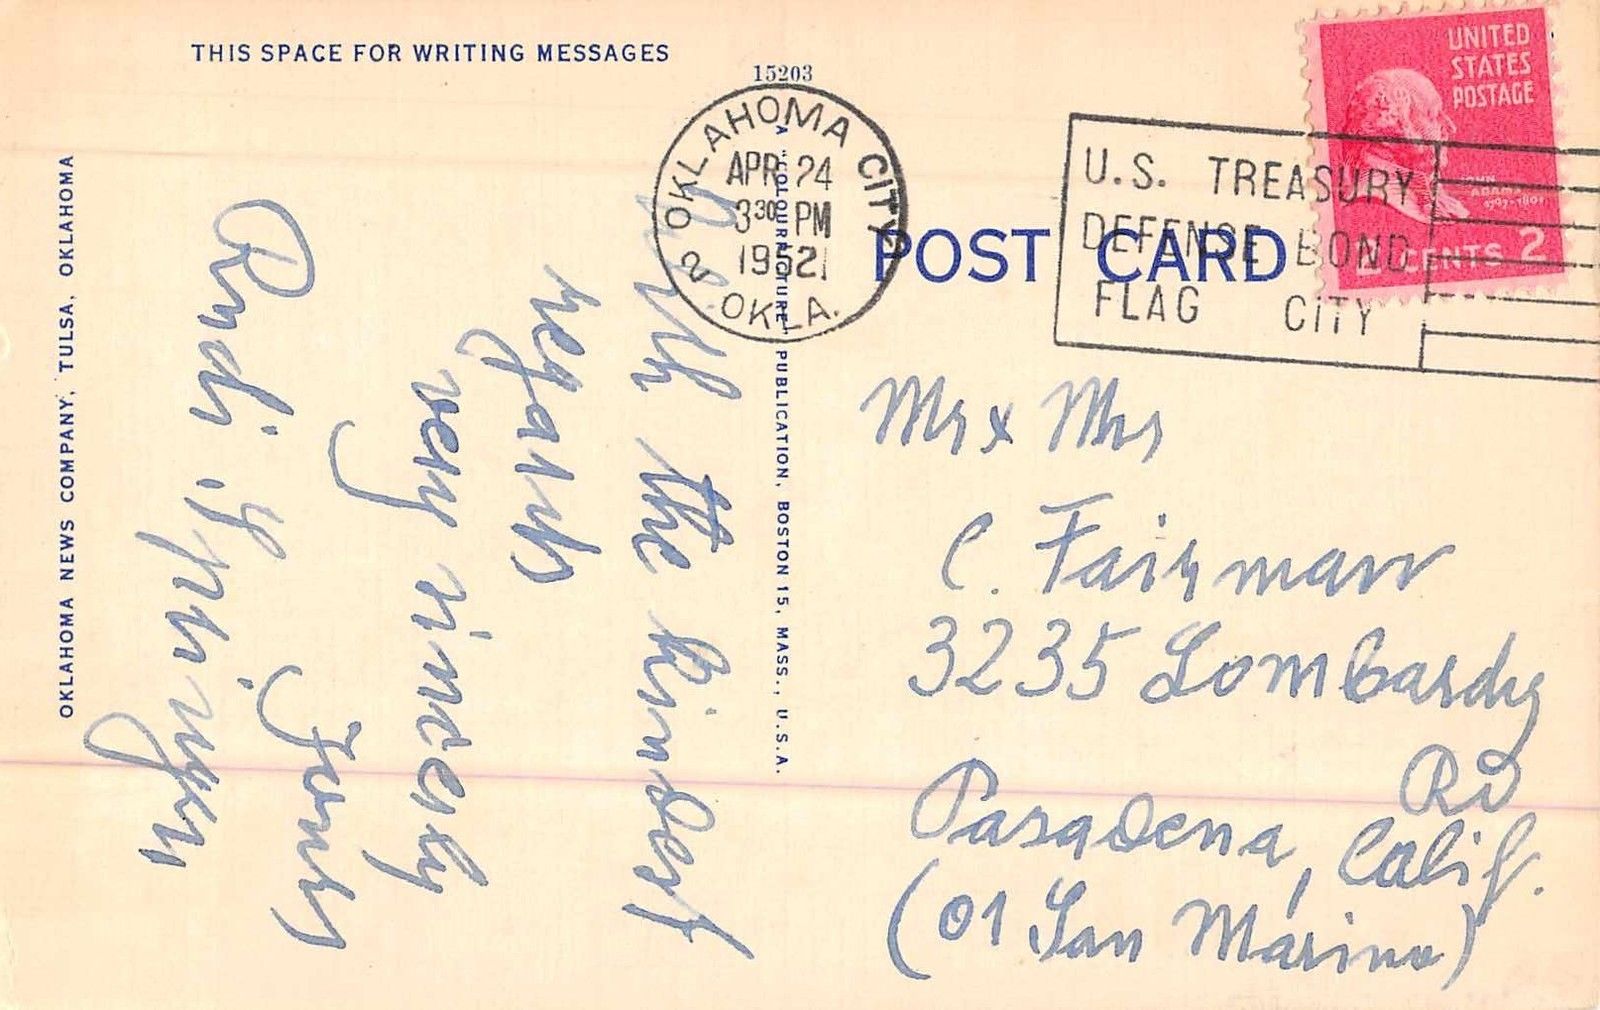 THIS SPACE FOR WRITING MESSAGES
15203
OKLAHOMA CITY
APR 24
3 30 PM
1952
2
OKLA.
U.S. TREASURY
DEFENSE BOND
FLAG CITY
UNITED
STATES
POSTAGE
JOHN
ADAMS
1797-1801
2 CENTS 2
POST CARD
A "COLOURPICTURE" PUBLICATION, BOSTON 15, MASS., U.S.A.
OKLAHOMA NEWS COMPANY, TULSA, OKLAHOMA
With the kindest
regards
very sincerely
Yours
Rudi
Mr & Mrs
C. Fairman
3235 Lombardy
Rd
Pasadena, Calif.
(or San Marino)